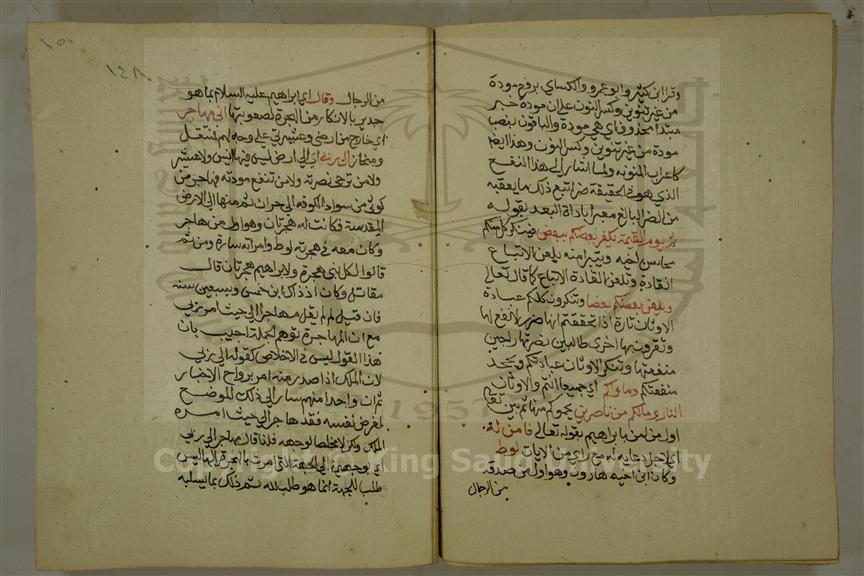 وقرا ابن كثير وابو عمرو والكسائي برفع مودة
من غير تنوين وكسر النون على ان مودة خبر
مبتدا محذوف اي هي مودة والباقون بنصب
مودة من غير تنوين وكسر النون وهذا ايضا
كاعراب المنونة ولما اشار الى هذا النفع
الذي هو في الحقيقة ضر اتبع ذلك ما يعقبه
من الضر البالغ معبرا باداة البعد بقوله
ثم يوم القيمة يكفر بعضكم ببعض فينكر كل منكم
محاسن اخيه ويتبرا منه يلعن الاتباع
القادة وتلعن القادة الاتباع كما قال تعالى
ويلعن بعضكم بعضا وتنكرون كلكم عبادة
الاوثان تارة اذا تحققتم انها ضرر لا نفع لها
وتقرون بها اخرى طالبين نصرتها راجين
منفعتها وتنكر الاوثان عبادتكم وتجحد
منفعتكم وماواكم اي جميعا انتم والاوثان
النار وما لكم من ناصرين يحموكم منها ثم بين تعالى
اول من امن بابراهيم بقوله تعالى فامن له
اي لاجل دعايه له مع راي من الايات لوط
وكان ابن اخيه هارون وهو اول من صدقه
من الرجال
١٤٨
من الرجال وقال اي ابراهيم عليه السلام بما هو
جدير بالانكار من الهجرة لصعوبتها اني مهاجر
اي خارج من ارضي وعشيرتي على وجه الهم فمنتقل
ومنحاز الى ربي اي الى ارض ليس فيها انيس ولا عشير
ولا من ترجى نصرته ولا من تنفع مودته فهاجر من
كوثى من سواد الكوفة الى حران ثم منها الى الارض
المقدسة فكانت له هجرتان وهو اول من هاجر
وكان معه في هجرته لوط وامراته سارة ومن ثم
قالوا لكل نبي هجرة ولابراهيم هجرتان قال
مقاتل وكان اذ ذاك ابن خمس وسبعين سنة
فان قيل لم لم يقل مهاجر الى حيث امر ربي
مع ان المهاجرة توهم الجهة اجيب بان
هذا القول ليس في الاخلاص كقوله الى ربي
لان الملك اذا صدر منه امر برواح الاخبار
ثم ان واحدا منهم سار الى ذلك الموضع
لغرض نفسه فقد هاجر الى حيث امره
الملك ولكن لا مخلصا لوجهه فلذا قال مهاجر الى ربي
اي توجهي الى الجهة التي امرت بالهجرة اليها ليس
طلبا للجهة انما هو طلب لله ثم علل ذلك بما يسليه
Copyright © King Saud University
1957